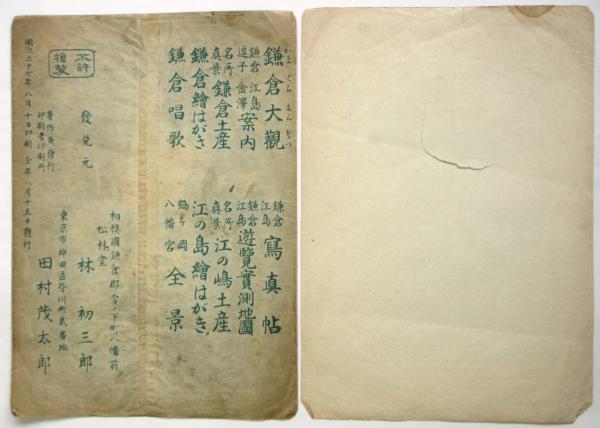 鎌倉大觀
鎌倉 江島
逗子 金澤 案内
名所
真景 鎌倉土産
鎌倉繪はがき
鎌倉唱歌
鎌倉
江島 寫真帖
鎌倉
江島 遊覽實測地圖
名所
真景 江の嶋土産
江の島繪はがき
鶴ヶ岡
八幡宮 全景
不許
複製
發兌元
相摸國鎌倉郡雪ノ下町八幡前
松林堂
林初三郎
東京市神田區皆川町貳番地
田村茂太郎
著作兼發行
印刷者印刷所
明治三十七年八月十日印刷 仝年八月十五日發行